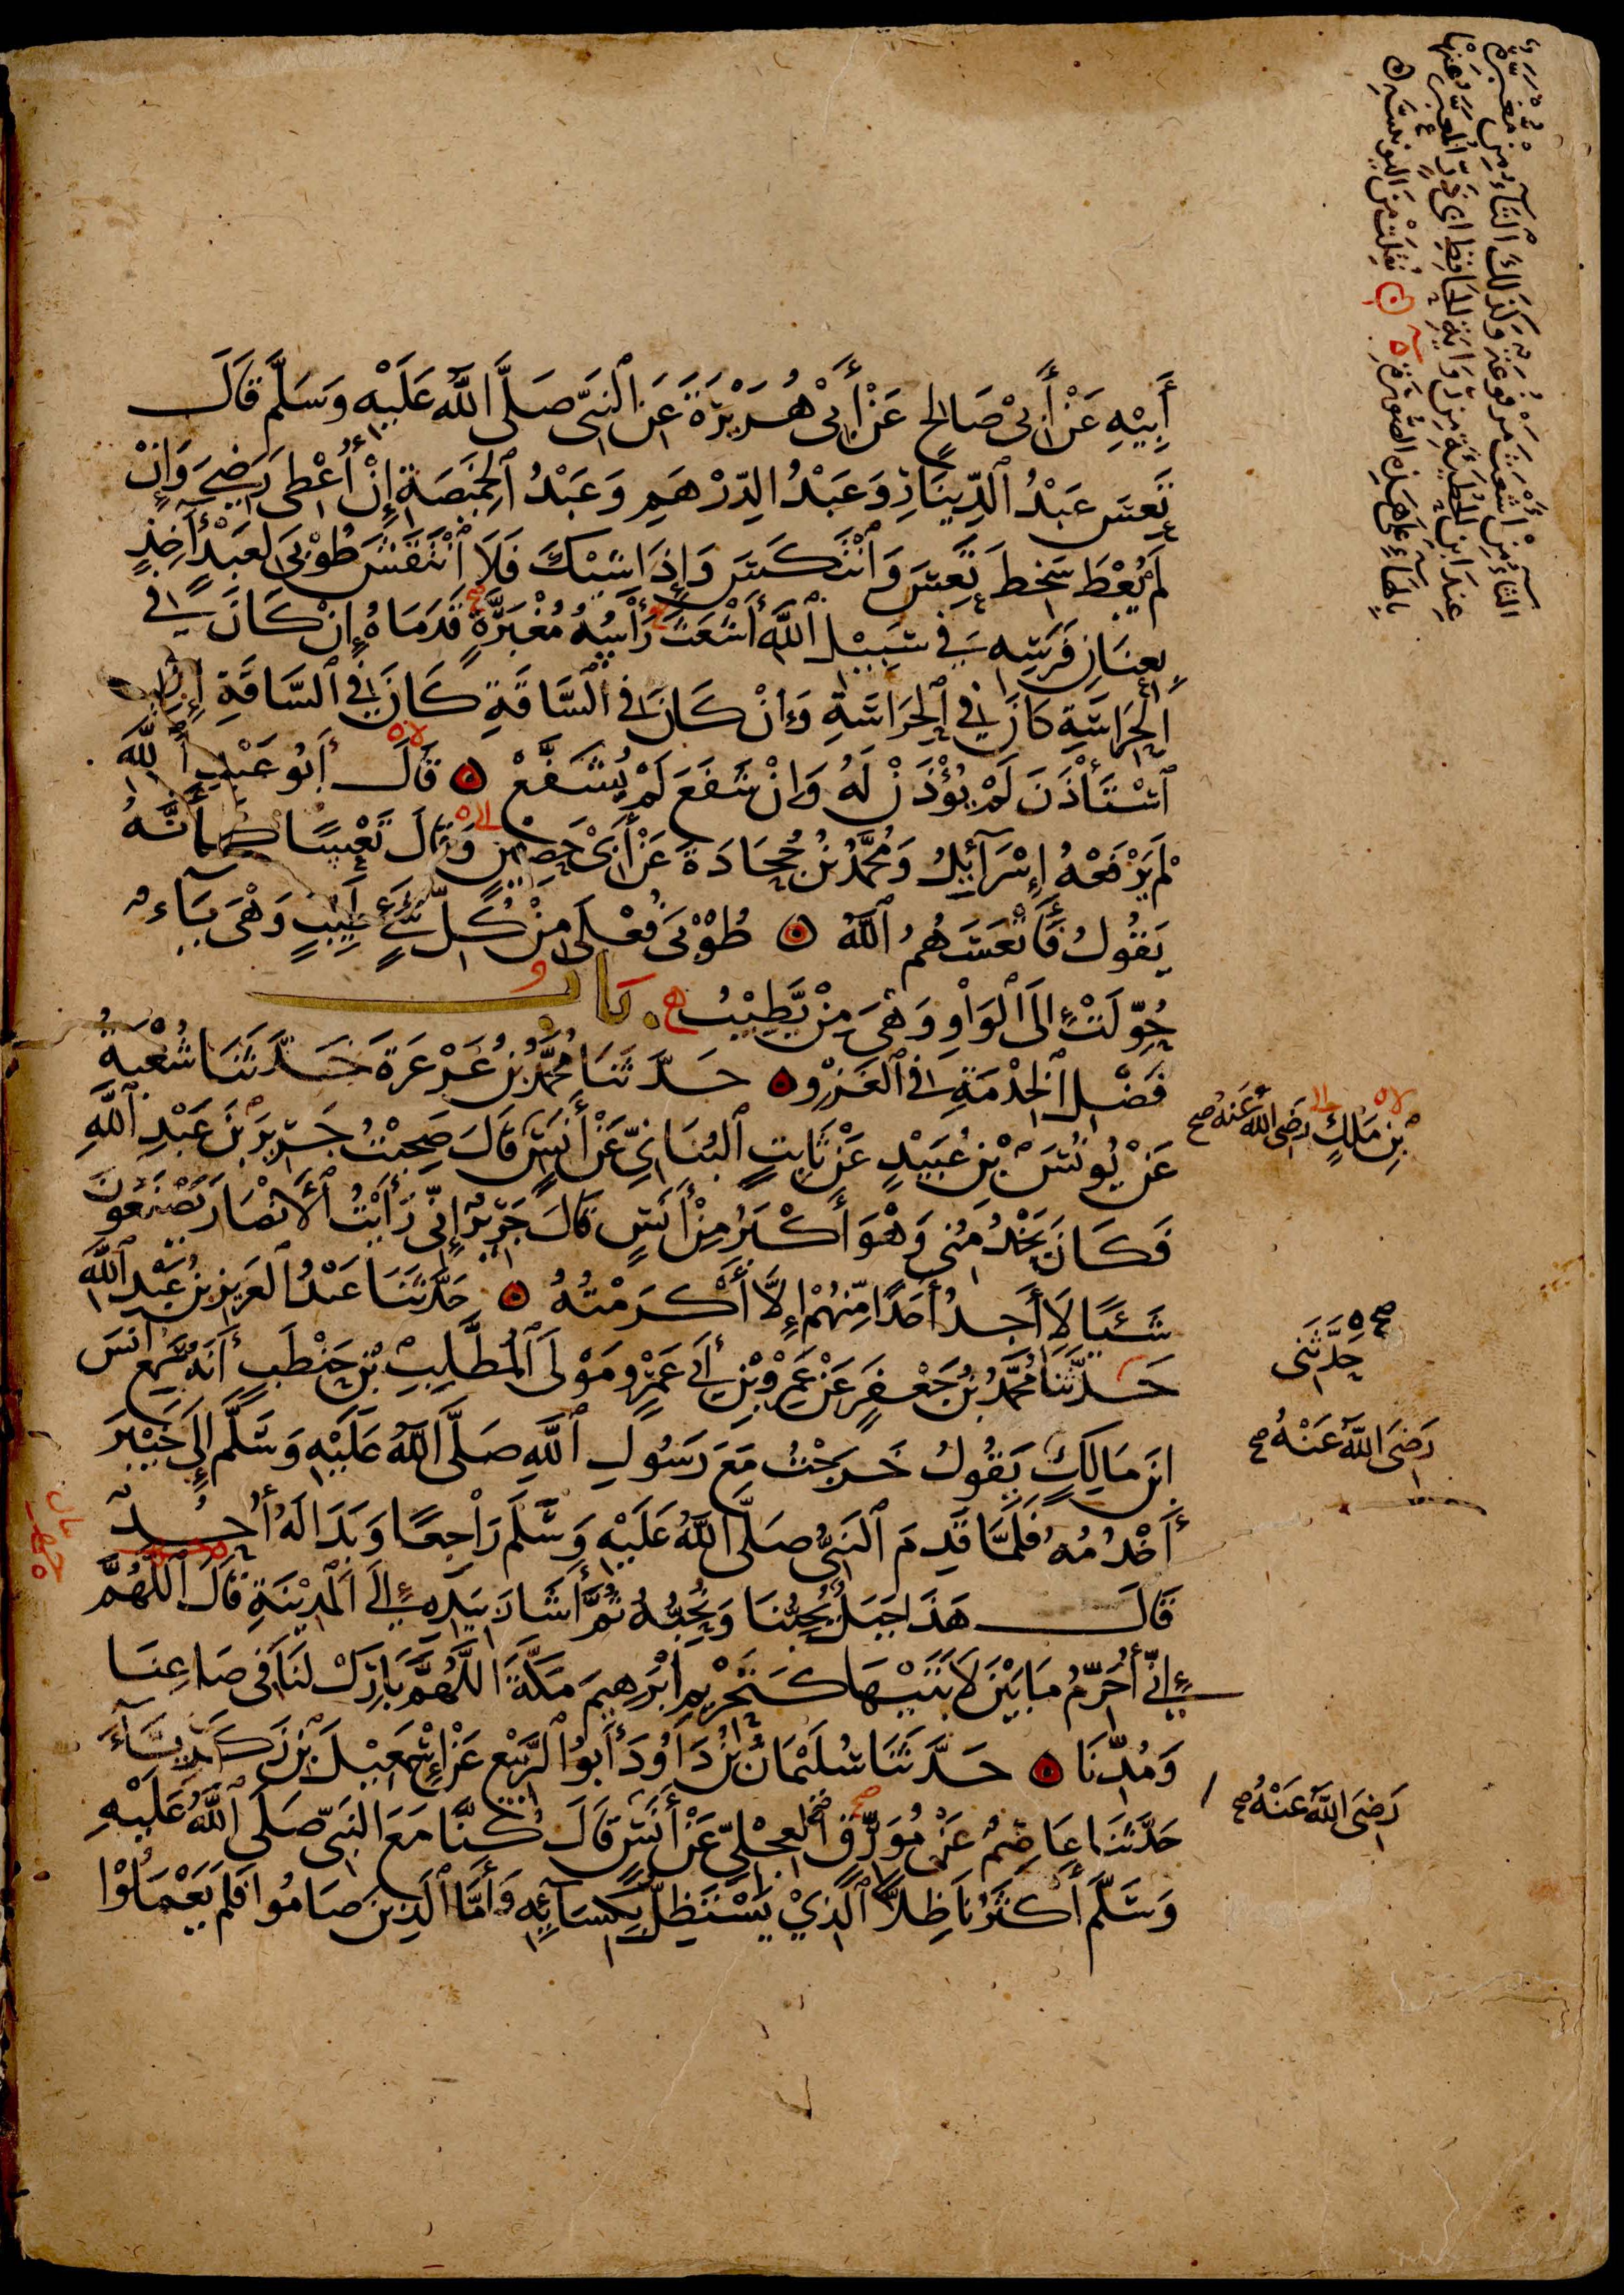 أَبِيْهِ عَنْ أَبِيْ صَالِحٍ عَنْ أَبِيْ هُرَيْرَةَ عَنِ النَّبِيِّ صَلَّى اللّٰهُ عَلَيْهِ وَسَلَّمَ قَالَ
تَعِسَ عَبْدُ الدِّينَارِ وَعَبْدُ الدِّرْهَمِ وَعَبْدُ الْخَمِيصَةِ إِنْ أُعْطِىَ رَضِيَ وَإِنْ
لَمْ يُعْطَ سَخِطَ تَعِسَ وَانْتَكَسَ وَإِذَا شِيْكَ فَلَا انْتَقَشَ طُوْبَى لِعَبْدٍ آخِذٍ
بِعِنَانِ فَرَسِهِ فِي سَبِيْلِ اللّٰهِ أَشْعَثَ رَأْسُهُ مُغْبَرَّةٍ قَدَمَاهُ إِنْ كَانَ فِي
الْحِرَاسَةِ كَانَ فِي الْحِرَاسَةِ وَإِنْ كَانَ فِي السَّاقَةِ كَانَ فِي السَّاقَةِ إِنِ
اسْتَأْذَنَ لَمْ يُؤْذَنْ لَهُ وَإِنْ شَفَعَ لَمْ يُشَفَّعْ قَالَ أَبُو عَبْدِ اللّٰهِ
لَمْ يَرْفَعْهُ إِسْرَآئِيْلُ وَمُحَمَّدُ بْنُ جُحَادَةَ عَنْ أَبِيْ حَصِيْنٍ وَقَالَ تَعْسًا كَأَنَّهُ
يَقُولُ فَأَتْعَسَهُمُ اللّٰهُ طُوْبَى فُعْلَى مِنْ كُلِّ شَيْءٍ طَيِّبٍ وَهْيَ يَآءٌ
حُوِّلَتْ إِلَى الْوَاوِ وَهْيَ مِنْ يَّطِيْبُ بَابُ
فَضْلِ الْخِدْمَةِ فِي الْغَزْوِ حَدَّثَنَا مُحَمَّدُ بْنُ عَرْعَرَةَ حَدَّثَنَا شُعْبَةُ
عَنْ يُونُسَ بْنِ عُبَيْدٍ عَنْ ثَابِتٍ الْبُنَانِيِّ عَنْ أَنَسٍ قَالَ صَحِبْتُ جَرِيْرَ بْنَ عَبْدِ اللّٰهِ
فَكَانَ يَخْدُمُنِي وَهْوَ أَكْبَرُ مِنْ أَنَسٍ قَالَ جَرِيْرٌ إِنِّي رَأَيْتُ الْأَنْصَارَ يَصْنَعُونَ
شَيْئًا لَا أَجِدُ أَحَدًا مِّنْهُمْ إِلَّا أَكْرَمْتُهُ حَدَّثَنَا عَبْدُ الْعَزِيزِ بْنُ عَبْدِ اللّٰهِ
حَدَّثَنَا مُحَمَّدُ بْنُ جَعْفَرٍ عَنْ عَمْرِو بْنِ أَبِي عَمْرٍو مَوْلَى الْمُطَّلِبِ بْنِ حَنْطَبٍ أَنَّهُ سَمِعَ أَنَسَ
ابْنَ مَالِكٍ يَقُولُ خَرَجْتُ مَعَ رَسُولِ اللّٰهِ صَلَّى اللّٰهُ عَلَيْهِ وَسَلَّمَ إِلَى خَيْبَرَ
أَخْدُمُهُ فَلَمَّا قَدِمَ النَّبِيُّ صَلَّى اللّٰهُ عَلَيْهِ وَسَلَّمَ رَاجِعًا وَبَدَا لَهُ أُحُدٌ
قَالَ هَذَا جَبَلٌ يُحِبُّنَا وَنُحِبُّهُ ثُمَّ أَشَارَ بِيَدِهِ إِلَى الْمَدِيْنَةِ قَالَ اللّٰهُمَّ
إِنِّي أُحَرِّمُ مَا بَيْنَ لَابَتَيْهَا كَتَحْرِيمِ إِبْرَهِيمَ مَكَّةَ اللّٰهُمَّ بَارِكْ لَنَا فِي صَاعِنَا
وَمُدِّنَا حَدَّثَنَا سُلَيْمَانُ بْنُ دَاوُدَ أَبُو الرَّبِيْعِ عَنْ إِسْمَعِيْلَ بْنِ زَكَرِيَّآءَ
حَدَّثَنَا عَاصِمٌ عَنْ مُوَرِّقٍ الْعِجْلِيِّ عَنْ أَنَسٍ قَالَ كُنَّا مَعَ النَّبِيِّ صَلَّى اللّٰهُ عَلَيْهِ
وَسَلَّمَ أَكْثَرُنَا ظِلًّا الَّذِيْ يَسْتَظِلُّ بِكِسَآئِهِ وَأَمَّا الَّذِينَ صَامُوا فَلَمْ يَعْمَلُوْا
بْنِ مَالِكٍ رَضِيَ اللّٰهُ عَنْهُ صح
صح حَدَّثَنِي
رَضِيَ اللّٰهُ عَنْهُ صح
رَضِيَ اللّٰهُ عَنْهُ صح